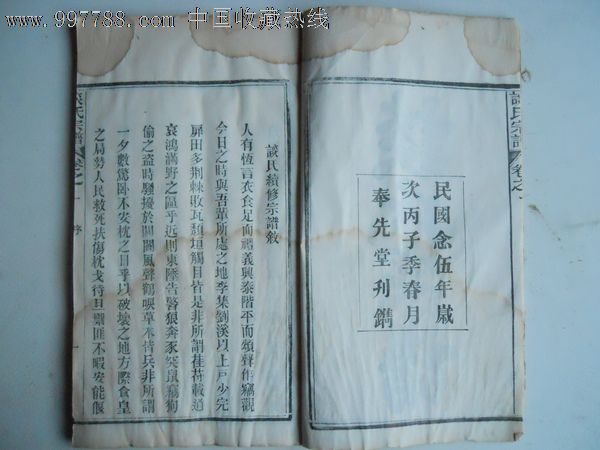 www.997788.com 中国收藏热线
談氏宗譜 卷之一
民國念伍年歲
次丙子季春月
奉先堂刊鐫
談氏續修宗譜敘
人有恆言衣食足而禮義興泰階平而頌聲作竊觀
今日之時與吾輩所處之地李集劉溪以上戶少完
屝田多荆棘敗瓦頹垣觸目皆是非所謂萑苻載道
哀鴻滿野之區乎近則東隊告警狼奔豕突鼠竊狗
偷之盜時騷擾於闤闠風聲鶴唳草木皆兵非所謂
一夕數驚卧不安枕之日乎以破壞之地方際倉皇
之局勢人民救死扶傷枕戈待旦禦匪不暇安能偃
談氏宗譜 卷之一 序 一